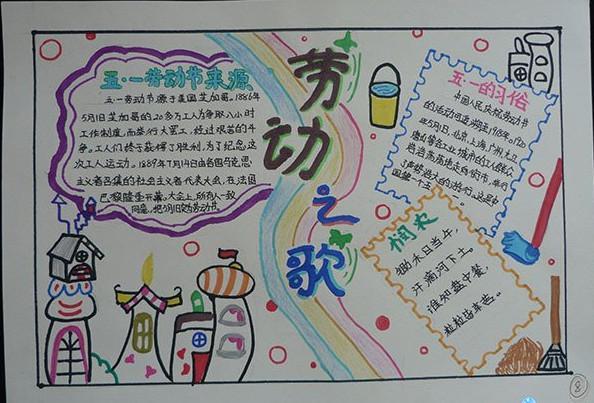 五·一劳动节来源
五·一劳动节源于美国芝加哥。1886年
5月1日芝加哥的20多万工人为争取八小时
工作制度,而举行大罢工,经过艰苦的斗
争。工人们终于获得了胜利,为了纪念这
次工人运动。1889年7月14日由各国马克思
主义者召集的社会主义者代表大会,在法国
巴黎隆重开幕。大会上,所有人一致
同意,把5月1日定为劳动节。
劳动之歌
五·一的习俗
中国人民庆祝劳动节
的活动可追溯至1918年。1920
年5月1日,北京,上海,广州,九江
唐山等各工业城市的工人群众
浩浩荡荡走向街市,举行
了声势浩大的游行,这是中
国第一个五一
悯农
锄禾日当午,
汗滴河下土。
谁知盘中餐,
粒粒皆辛苦。
8